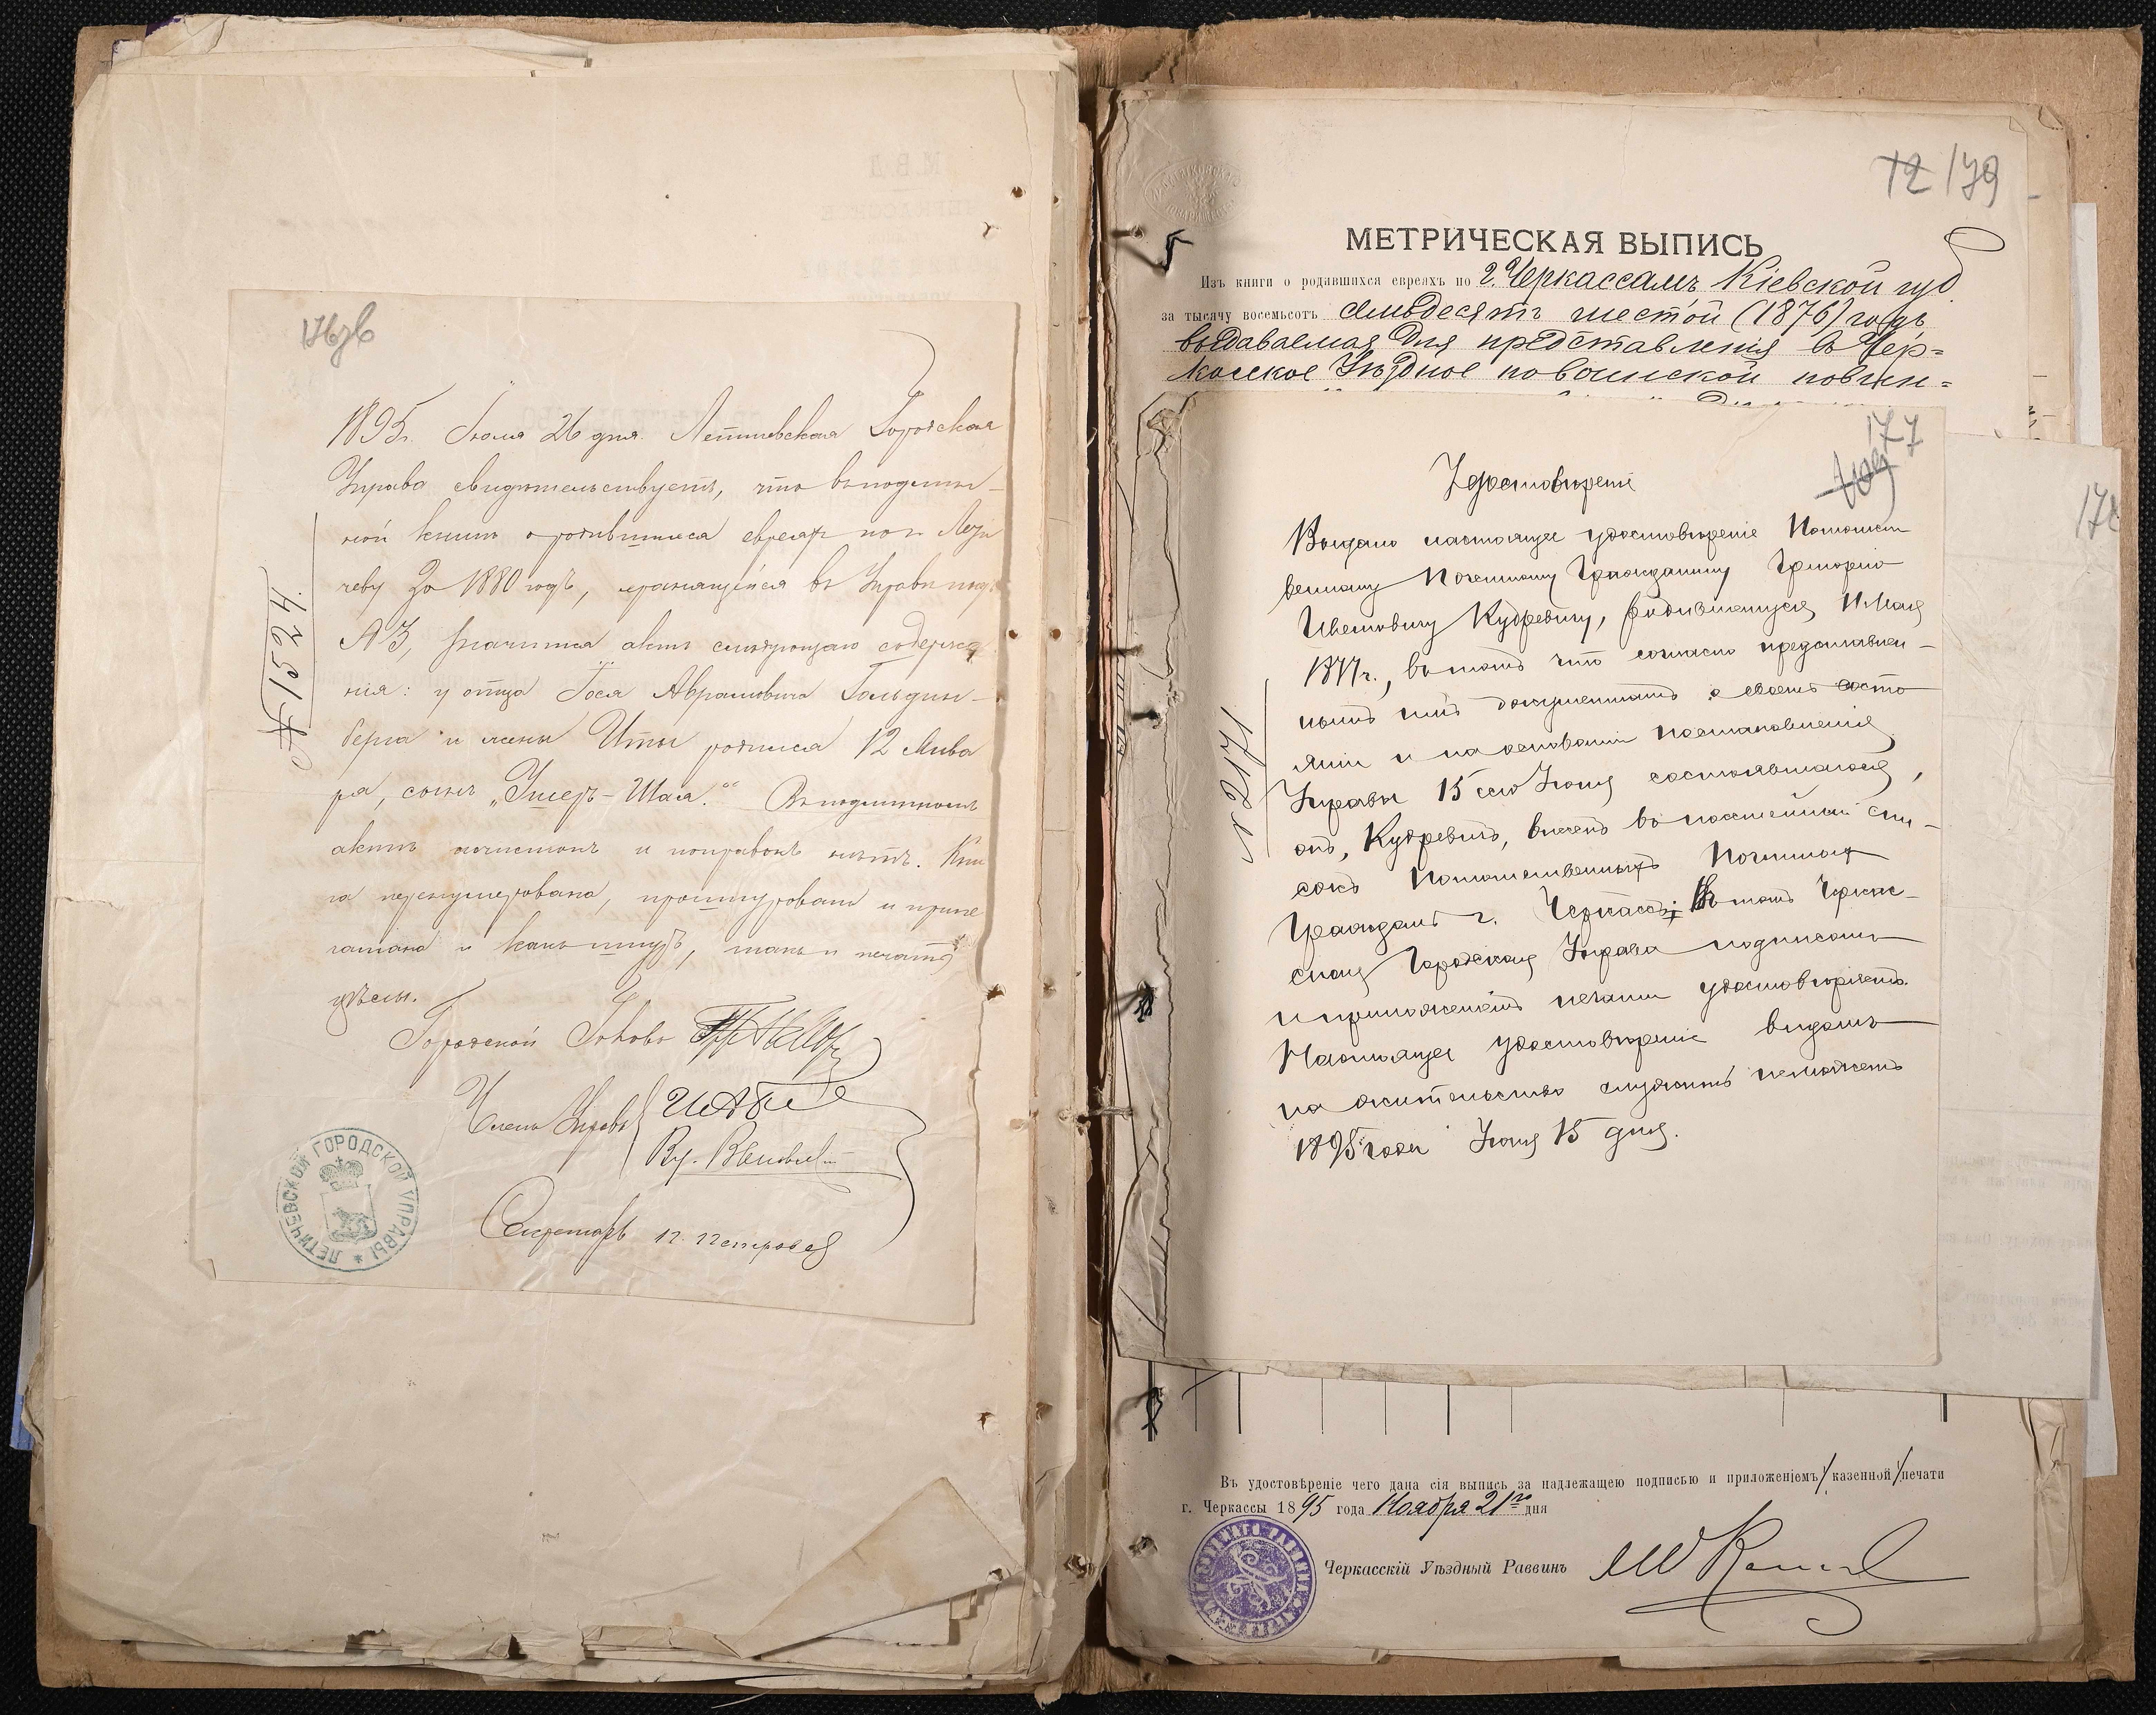 176 зв
1895 г. Іюля 26 дня. Летичевская Городская
Управа свидетельствуетъ, что въ подлин-
ной книгѣ о родившихся евреяхъ по г. Лети
чеву за 1880 годъ, хранящейся въ Управѣ подъ
№ 3, значится актъ слѣдующаго содержа
нія: у отца Іося Абрамовича Гольдин-
берга и жены Иты родился 12 Янва
ря, сынъ „Ушеръ-Шая.“ Въ подлинномъ
актѣ подчистокъ и поправокъ нѣтъ. Кни
га перенумерована, прошнурована и припе
чатана и какъ шнуръ, такъ и печать
цѣлы.
Городской Голова
Члены Управы
Секретарь П. Петровъ
№ 1524
ЛЕТИЧЕВСКОЙ ГОРОДСКОЙ УПРАВЫ
72 179
МЕТРИЧЕСКАЯ ВЫПИСЬ
Изъ книги о родившихся евреяхъ по г. Черкассамъ Кіевской губ.
за тысячу восемьсотъ семьдесятъ шестой (1876) годъ
выдаваемая для представленія въ Чер=
касское Уѣздное по воинской повин=
177
178
Удостовѣреніе
Выдано настоящее удостовѣреніе Потомст
венному Почетному Гражданину Григорію
Ивановичу Кудревичу, родившемуся 11 Мая
1877 г., въ томъ что согласно представлен-
нымъ имъ документамъ о своемъ состо
яніи и на основаніи постановленія
Управы 15 сего Іюня состоявшагося,
онъ, Кудревичъ, внесенъ въ посемейный спи-
сокъ Потомственныхъ Почетныхъ
Гражданъ г. Черкассъ; Въ томъ Черкас-
ская Городская Управа подписомъ
и приложеніемъ печати удостовѣряетъ.
Настоящее удостовѣреніе видомъ
на жительство служить не можетъ
1895 года Іюня 15 дня.
№ 2171
Въ удостовѣреніе чего дана сія выпись за надлежащею подписью и приложеніемъ казенной печати
г. Черкассы 1895 года Ноября 21го дня
Черкасскій Уѣздный Раввинъ